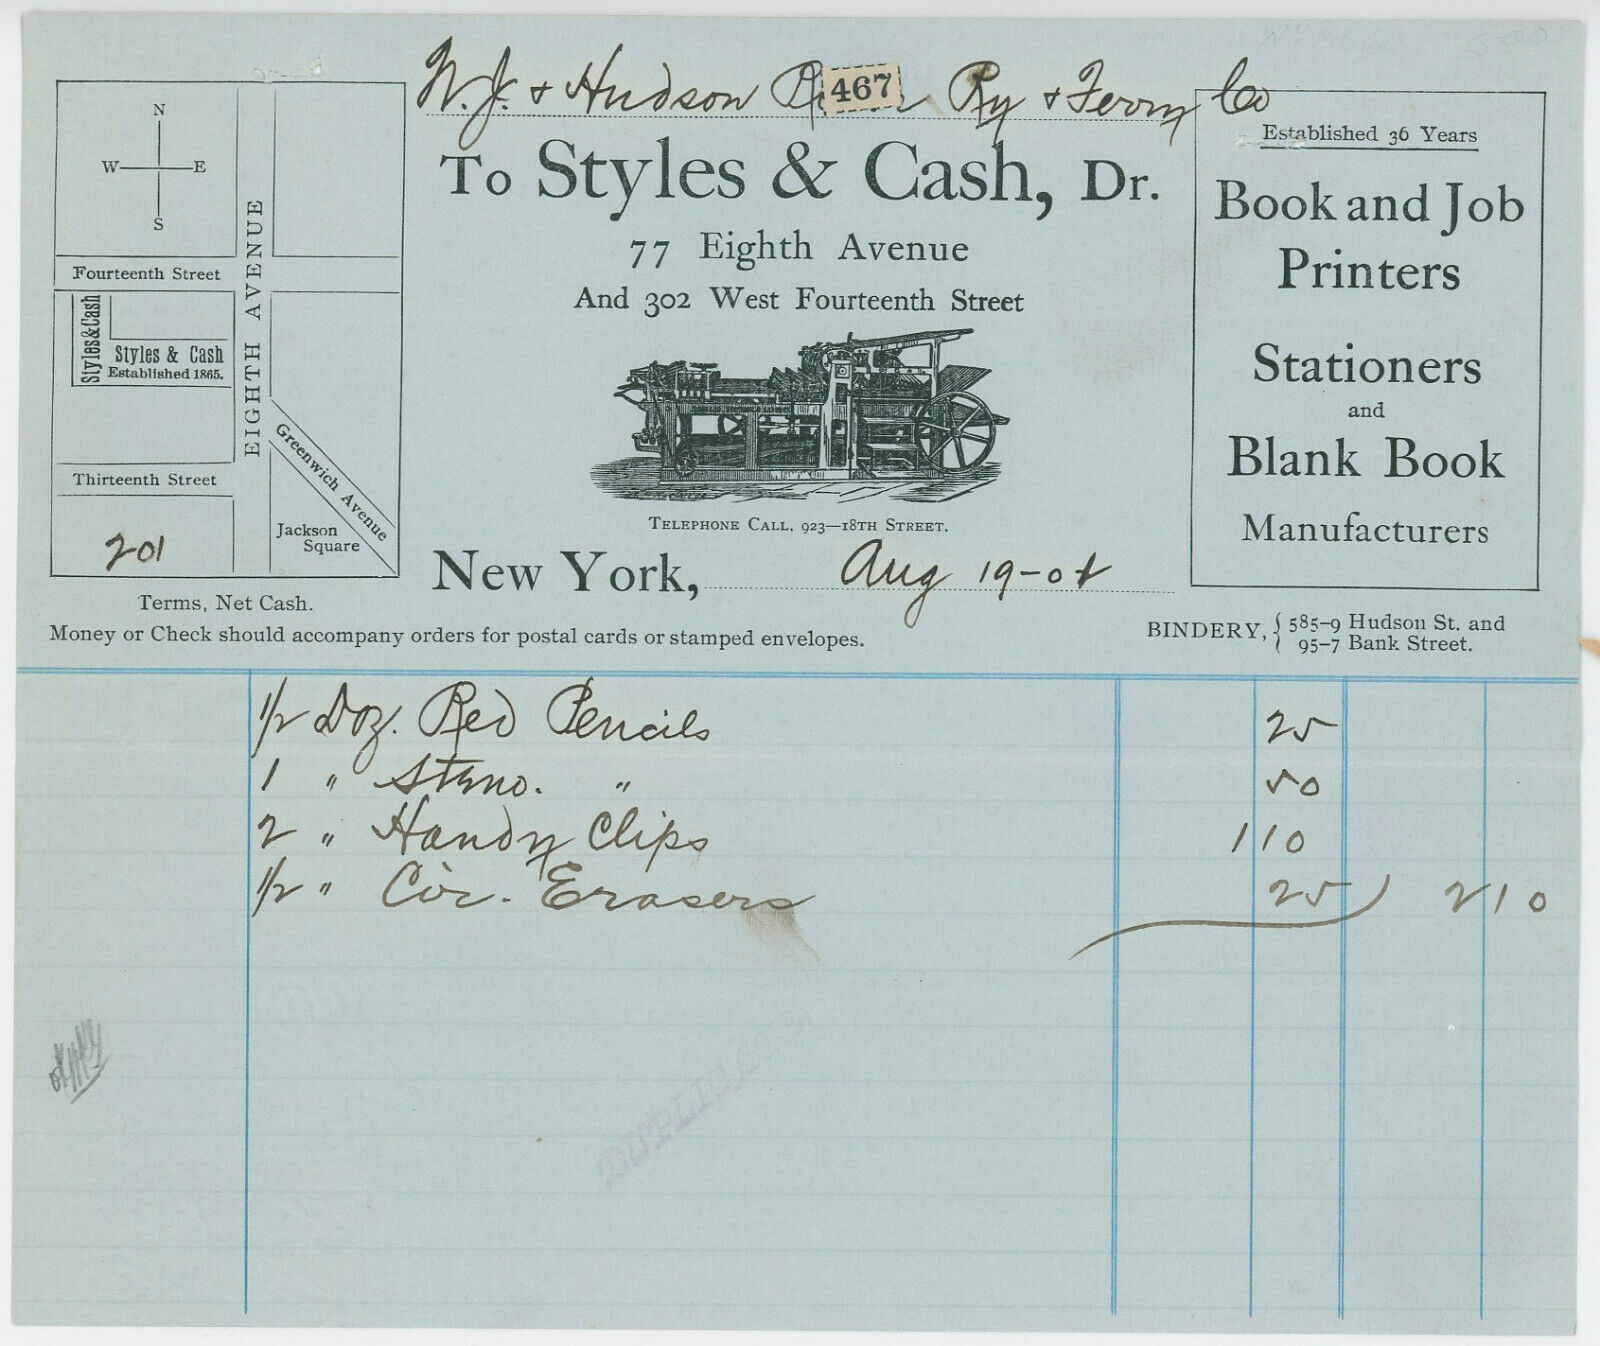 N.J. & Hudson Ry & Ferry Co
467
To Styles & Cash, Dr.
77 Eighth Avenue
And 302 West Fourteenth Street
Telephone Call, 923—18th Street.
New York, Aug 19-01
N
W E
S
Fourteenth Street
EIGHTH AVENUE
Styles&Cash
Styles & Cash
Established 1865.
Greenwich Avenue
Thirteenth Street
Jackson
Square
201
Terms, Net Cash.
Money or Check should accompany orders for postal cards or stamped envelopes.
Established 36 Years
Book and Job
Printers
Stationers
and
Blank Book
Manufacturers
BINDERY, { 585-9 Hudson St. and
95-7 Bank Street.
1/2 Doz. Red Pencils 25
1 " Steno. " 50
2 " Handy Clips 1 10
1/2 " Cir. Erasers 25 2 10
DUPLICATE